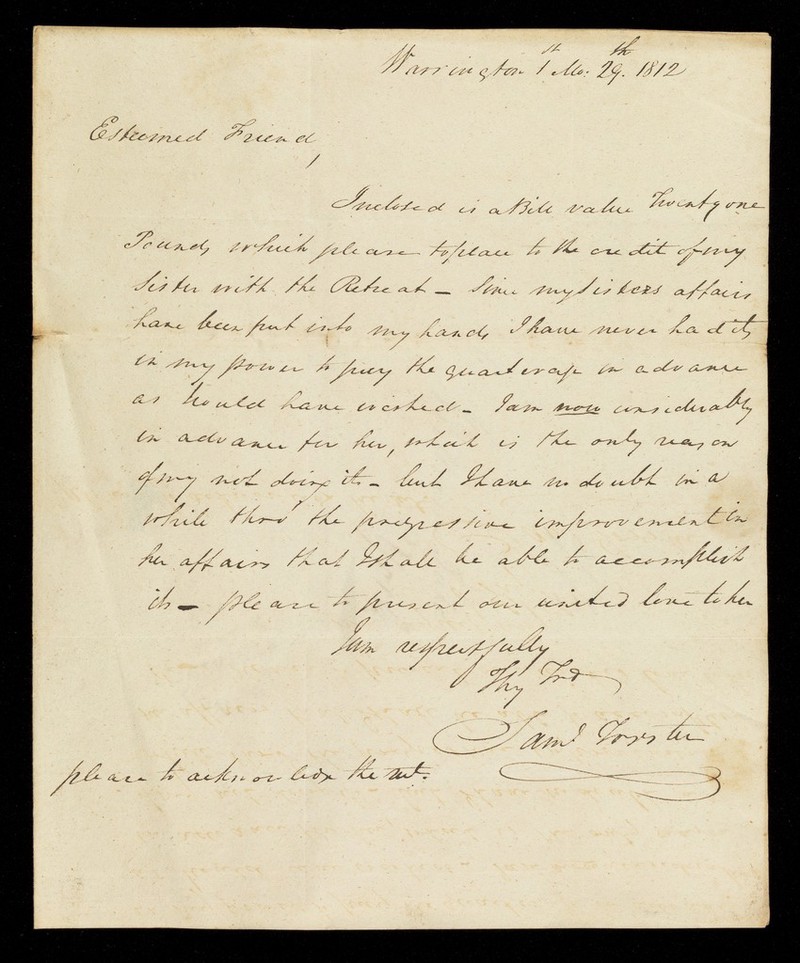 Warrington 1st Mo: 29th. 1812
Esteemed Friend,
Inclosed is a Bill value Twenty one
Pounds which please to place to the credit of my
Sister with the Retreat - Since my Sisters affairs
have been put into my hands I have never had it
in my power to pay the quarterage in advance
as I could have wished - I am now considerably
in advance for her, which is the only reason
of my not doing it - but I have no doubt in a
while thro' the progressive improvement in
her affairs that I shall be able to accomplish
it - please to present our united love to her
I am respectfully
Thy Frd
Saml Forster
please to acknowledge the rect.